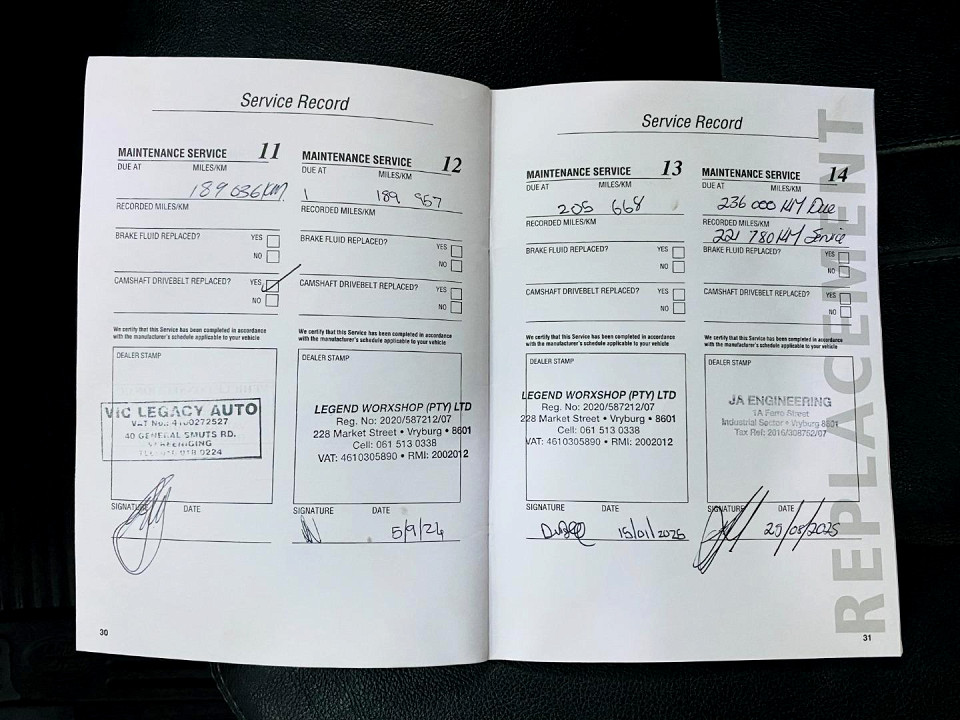 Service Record
MAINTENANCE SERVICE 11
DUE AT MILES/KM
189 636 KM
RECORDED MILES/KM
BRAKE FLUID REPLACED? YES
NO
CAMSHAFT DRIVEBELT REPLACED? YES
NO
We certify that this Service has been completed in accordance
with the manufacturer's schedule applicable to your vehicle
DEALER STAMP
VIC LEGACY AUTO
VAT No.: 4100272527
40 GENERAL SMUTS RD.
VEREENIGING
0224
SIGNATURE DATE
30
MAINTENANCE SERVICE 12
DUE AT MILES/KM
189 957
RECORDED MILES/KM
BRAKE FLUID REPLACED? YES
NO
CAMSHAFT DRIVEBELT REPLACED? YES
NO
We certify that this Service has been completed in accordance
with the manufacturer's schedule applicable to your vehicle
DEALER STAMP
LEGEND WORXSHOP (PTY) LTD
Reg. No: 2020/587212/07
228 Market Street • Vryburg • 8601
Cell: 061 513 0338
VAT: 4610305890 • RMI: 2002012
SIGNATURE DATE
5/9/24
Service Record
MAINTENANCE SERVICE 13
DUE AT MILES/KM
205 668
RECORDED MILES/KM
BRAKE FLUID REPLACED? YES
NO
CAMSHAFT DRIVEBELT REPLACED? YES
NO
We certify that this Service has been completed in accordance
with the manufacturer's schedule applicable to your vehicle
DEALER STAMP
LEGEND WORXSHOP (PTY) LTD
Reg. No: 2020/587212/07
228 Market Street • Vryburg • 8601
Cell: 061 513 0338
VAT: 4610305890 • RMI: 2002012
SIGNATURE DATE
15/01/2025
MAINTENANCE SERVICE 14
DUE AT MILES/KM
236 000 KM Due
RECORDED MILES/KM
221 780 KM Service
BRAKE FLUID REPLACED? YES
NO
CAMSHAFT DRIVEBELT REPLACED? YES
NO
We certify that this Service has been completed in accordance
with the manufacturer's schedule applicable to your vehicle
DEALER STAMP
JA ENGINEERING
1A Ferro Street
Industrial Sector • Vryburg 8601
Tax Ref: 2016/308752/07
SIGNATURE DATE
25/08/2025
REPLACEMENT
31